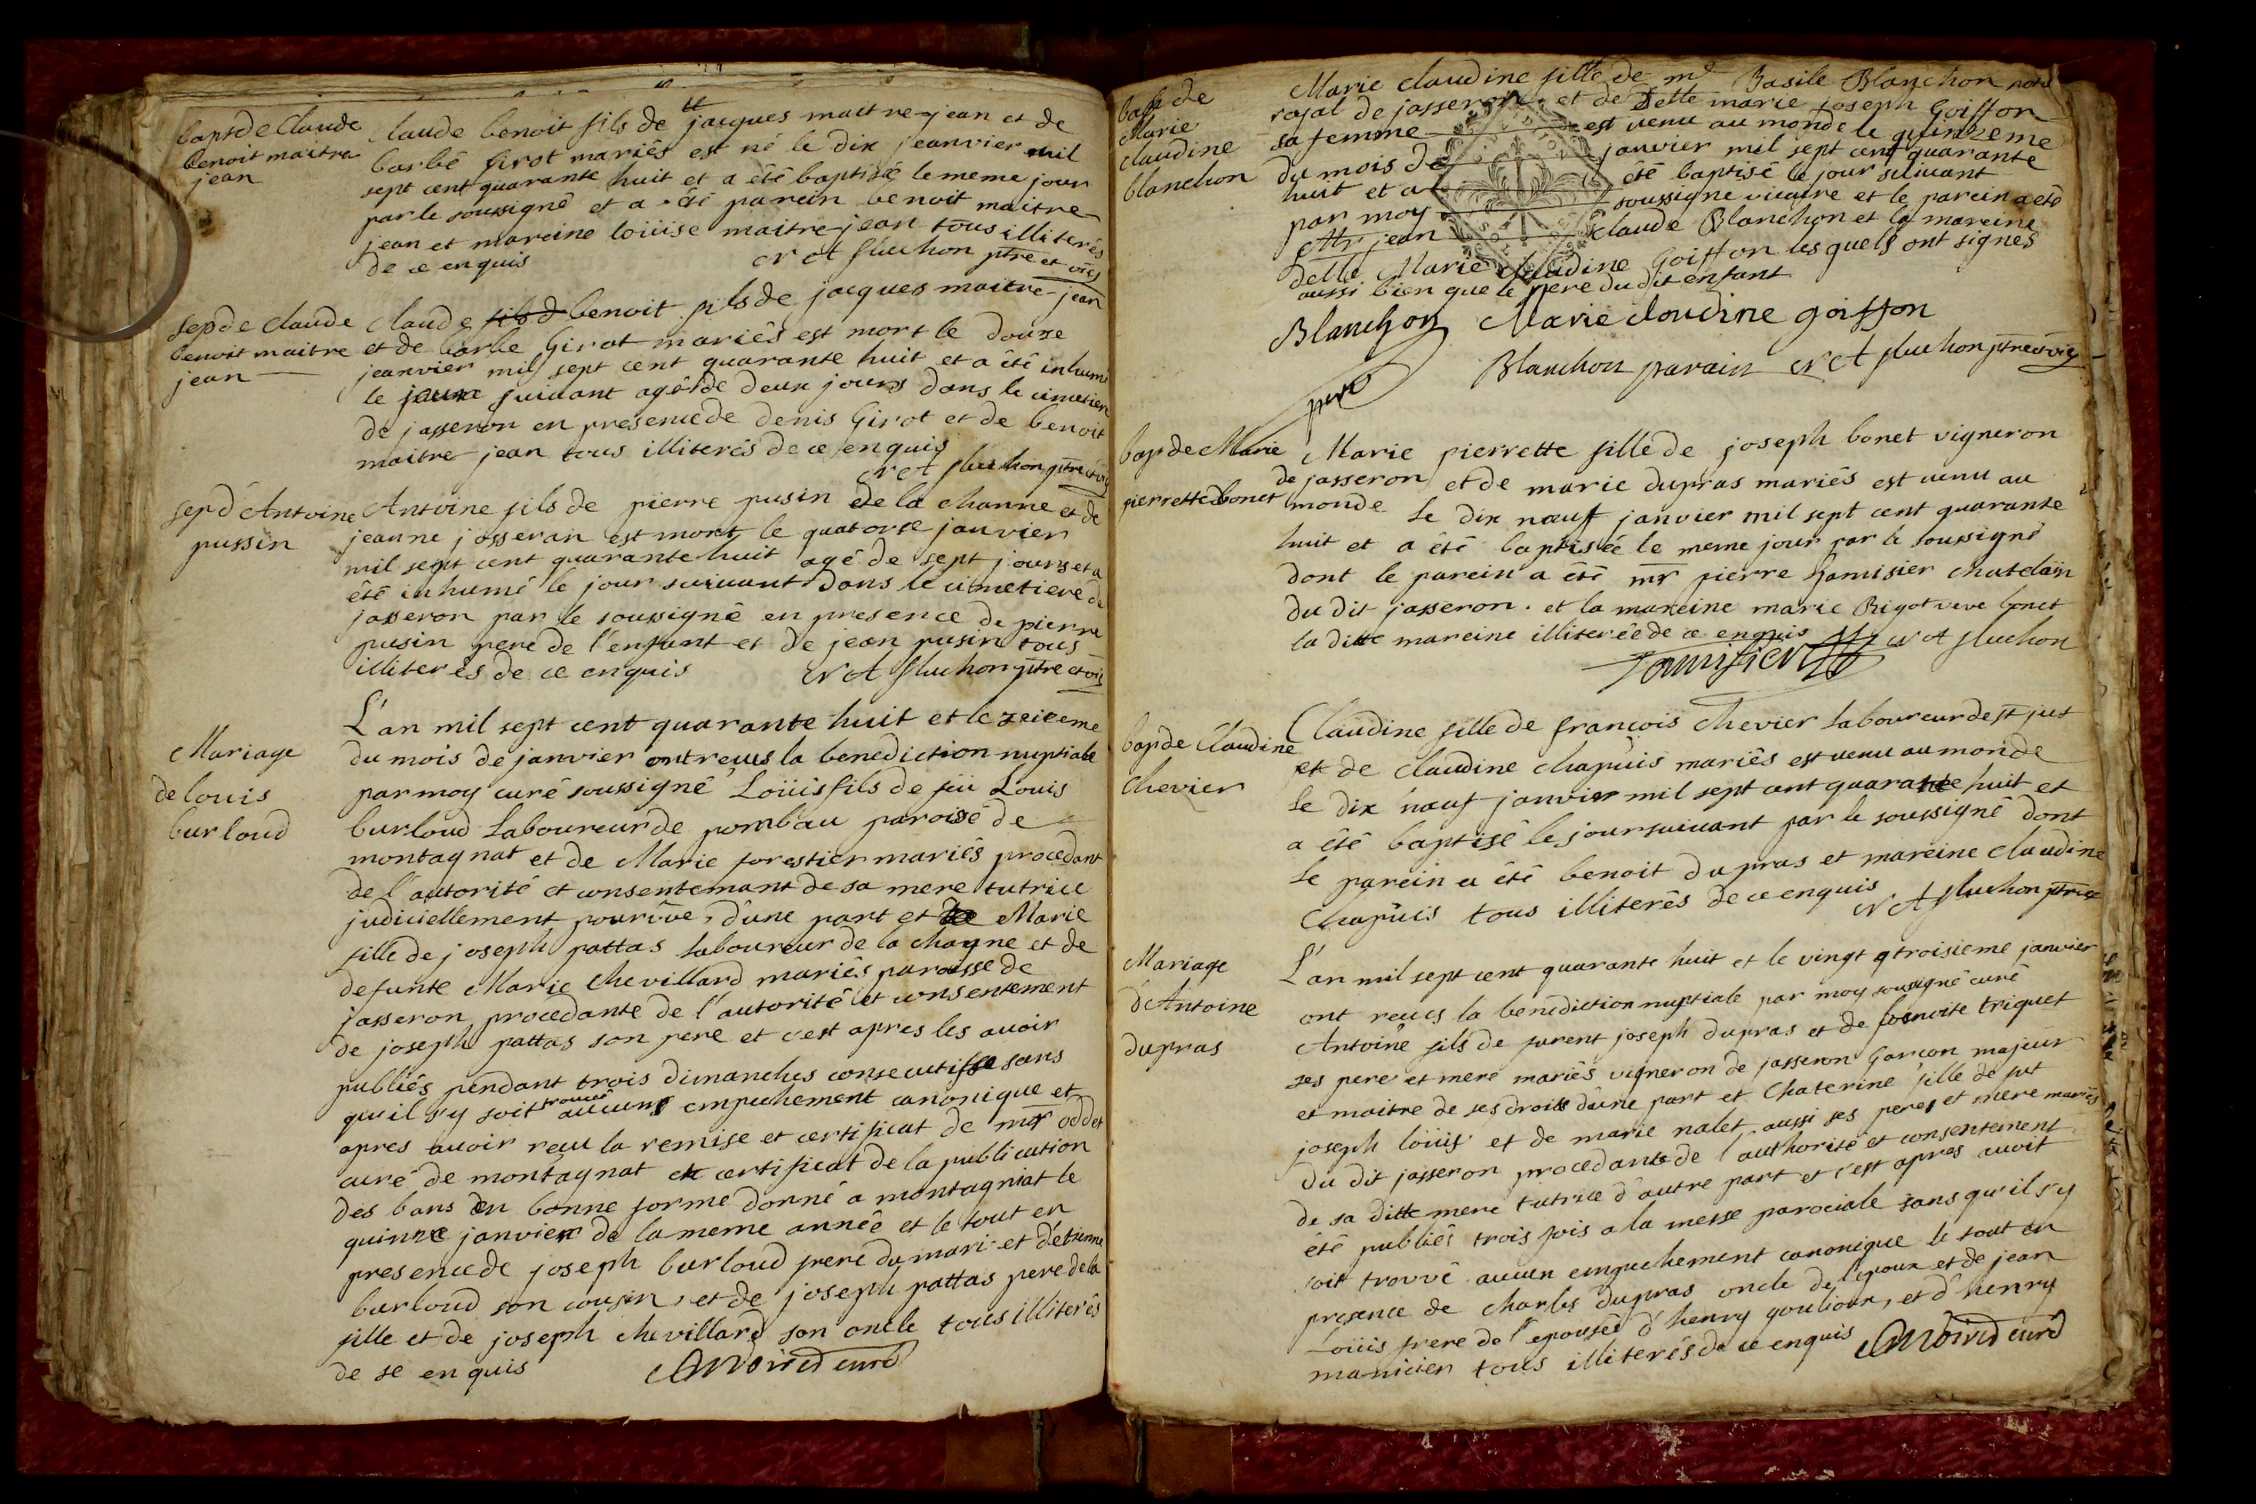 bapt de Claude
benoit maitre
jean
Claude benoit fils de jacques maitre-jean et de
barbe Girot mariés est né le dix jeanvier mil
sept cent quarante huit et a été baptisé le meme jour
par le soussigné et a été parein benoit maitre
jean et mareine loüise maitre-jean tous illiterés
de ce enquis fluchon ptre et vic
sep de Claude
benoit maitre
jean
Claude fils d benoit fils de jacques maitre-jean
et de barbe Girot mariés est mort le douze
jeanvier mil sept cent quarante huit et a été inhumé
le jour suivant agé de deux jours dans le cimetiere
de jasseron en presence de denis Girot et de benoit
maitre jean tous illiterés de ce enquis
fluchon ptre et vic
sep d'Antoine
pussin
Antoine fils de pierre pusin de la channe et de
jeanne josseran est mort le quatorze janvier
mil sept cent quarante huit agé de sept jours et a
été inhumé le jour suivant dans le cimetiere de
jasseron par le soussigné en presence de pierre
pusin pere de l'enfant et de jean pusin tous
illiterés de ce enquis fluchon ptre et vic
Mariage
de louis
burloud
L'an mil sept cent quarante huit et le zeizeme
du mois de janvier ont reçus la benediction nuptiale
par moy curé soussigné Loüis fils de feü Louis
burloud Laboureur de pombau paroise de
montagnat et de Marie forestier mariés procedant
de l'autorité et consentemant de sa mere tutrice
judiciellement pourvûe, d'une part et Marie
fille de joseph pattas laboureur de la chagne et de
defunte Marie Chevillard mariés paroisse de
jasseron procedante de l'autorité et consentement
de joseph pattas son pere et c'est apres les avoir
publiés pendant trois dimanches consecutifs sans
qu'il s'y soit trouvé aucuns empechement canonique et
apres avoir recu la remise et certificat de mr oddet
curé de montagnat et certificat de la publication
des bans en bonne forme donné a montagniat le
quinze janvier de la meme année et le tout en
presence de joseph burloud frere du mari et d'etienne
burloud son cousin, et de joseph pattas pere de la
fille et de joseph chevillard son oncle tous illiterés
de se enquis curé
bapt de
Marie
claudine
blanchon
Marie claudine fille de me Basile Blanchon note
royal de jasseron et de Delle marie joseph Goiffon
sa femme est venu au monde le quinzeme
du mois de janvier mil sept cent quarante
huit et a été baptisé le jour suivant
par moy soussigné vicaire et le parein a eté
jean claude Blanchon et la mareine
delle Marie claudine Goiffon les quels ont signés
aussi bien que le pere du dit enfant
Blanchon Marie cloudine goiffon
pere Blanchon parain fluchon ptre et vic
bap de Marie
pierrette bonet
Marie pierrette fille de joseph bonet vigneron
de jasseron et de marie dupras mariés est venu au
monde le dix nœuf janvier mil sept cent quarante
huit et a été baptisée le meme jour par le soussigné
dont le parein a été mr pierre tamisier chatelain
du dit jasseron. et la mareine marie Rigot veve bonet
la ditte mareine illiterée de ce enquis fluchon
Tamisier
bap de Claudine
Chevier
Claudine fille de françois Chevier Laboureur de st just
et de claudine chapüis mariés est venu au monde
le dix nœuf janvier mil sept cent quarante huit et
a été baptisé le jour suivant par le soussigné dont
le parein a été benoit dupras et mareine claudine
Chapüis tous illiterés de ce enquis fluchon ptre
Mariage
d'Antoine
dupras
L'an mil sept cent quarante huit et le vingt troisieme janvier
ont recus la benediction nuptiale par moy soussigné curé
Antoine fils de furent joseph dupras et de benoite triquet
ses pere et mere mariés vigneron de jasseron Garcon majeur
et maitre de ses droits d'une part et Chaterine fille de fut
joseph loüis et de marie nalet aussi ses peres et mere mariés
du dit jasseron procedante de l'authorité et consentement
de sa ditte mere tutrice d'autre part et c'est apres avoit
été publiés trois fois a la messe parociale sans qu'il s'y
soit trouvé aucun empechement canonique le tout en
presance de charles dupras oncle de l'epoux et de jean
Loüis frere de l'epouse d'henry goulioux, et d'henry
manicier tous illiterés de ce enquis curé